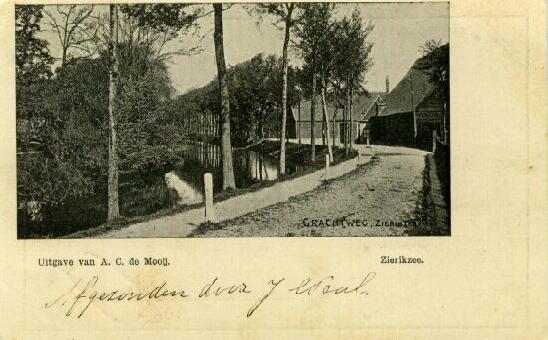 GRACHTWEG, ZIERIKZEE
Uitgave van A. C. de Mooij. Zierikzee.
Afgezonden door J